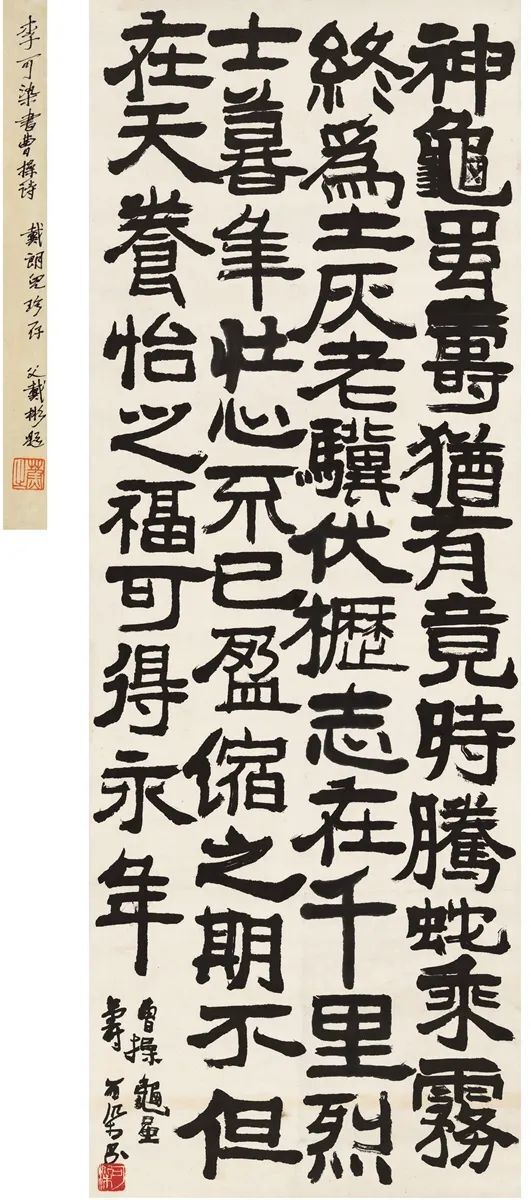 神龜虽壽猶有竟時騰蛇乘霧
終爲土灰老驥伏櫪志在千里烈
士暮年壯心不已盈縮之期不但
在天養怡之福可得永年
曹操 龜虽
壽 可染書
可染
李可染書曹操詩 戴朗兒珍存 父戴彬題